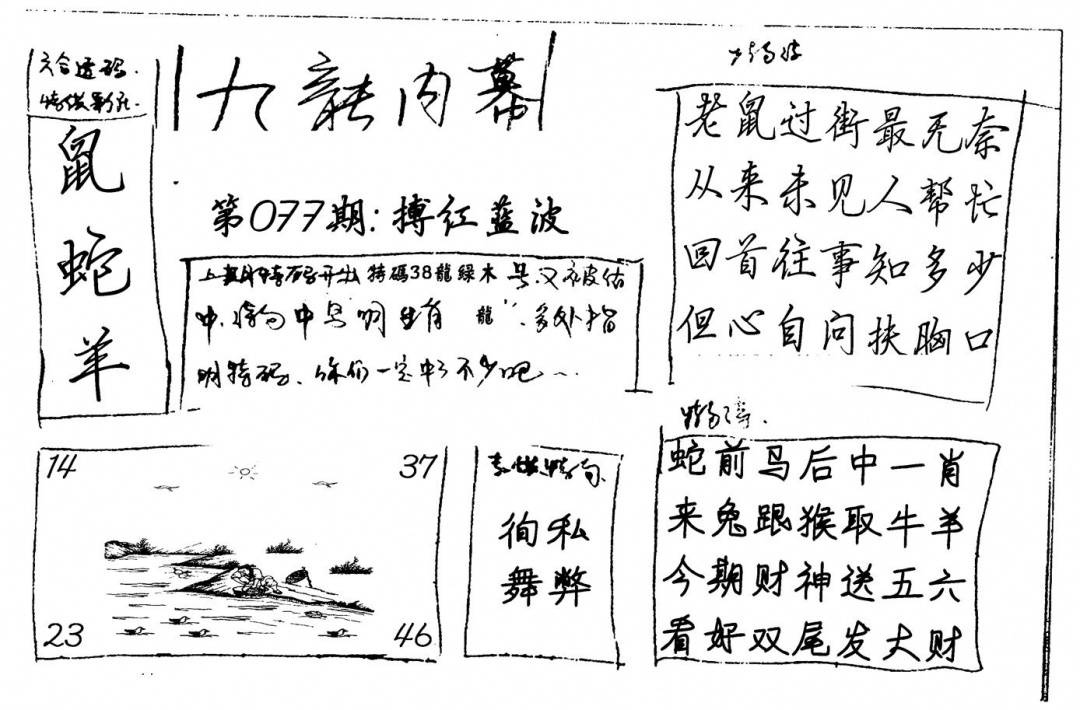 六合透码
鼠
蛇
羊
九龍内幕
第077期:搏红蓝波
上期特码开出 特碼38龍綠木 号又被估
中.特句中 生肖 龍 多处指
明特码、你们一定中了不少吧
老鼠过街最无奈
从来未见人帮忙
回首往事知多少
但心自问扶胸口
14
37
23
46
徇私
舞弊
蛇前马后中一肖
来兔跟猴取牛羊
今期财神送五六
看好双尾发大财